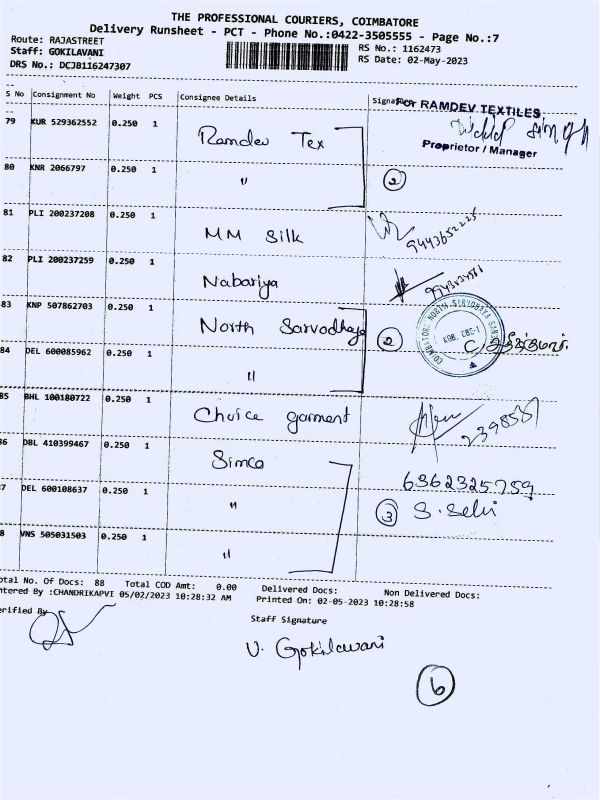 THE PROFESSIONAL COURIERS, COIMBATORE
Delivery Runsheet - PCT - Phone No.:0422-3505555 - Page No.:7
Route: RAJASTREET
Staff: GOKILAVANI
DRS No.: DCJB116247307
RS No.: 1162473
RS Date: 02-May-2023
S No Consignment No Weight PCS Consignee Details Signature
For RAMDEV TEXTILES
Proprietor / Manager
79 KUR 529362552 0.250 1 Ramdev Tex
80 KNR 2066797 0.250 1 " 2
81 PLI 200237208 0.250 1 MM Silk
82 PLI 200237259 0.250 1 Nabariya
83 KNP 507862703 0.250 1 North Sarvodhaya 2
84 DEL 600085962 0.250 1 "
85 BHL 100180722 0.250 1 Choice garment
86 DBL 410399467 0.250 1 Simco
6362325759
87 DEL 600108637 0.250 1 " 3 S. Selvi
88 VNS 505031503 0.250 1 "
Total No. Of Docs: 88 Total COD Amt: 0.00 Delivered Docs: Non Delivered Docs:
Entered By :CHANDRIKAPVI 05/02/2023 10:28:32 AM Printed On: 02-05-2023 10:28:58
Verified By
Staff Signature
V. Gokilavani
6